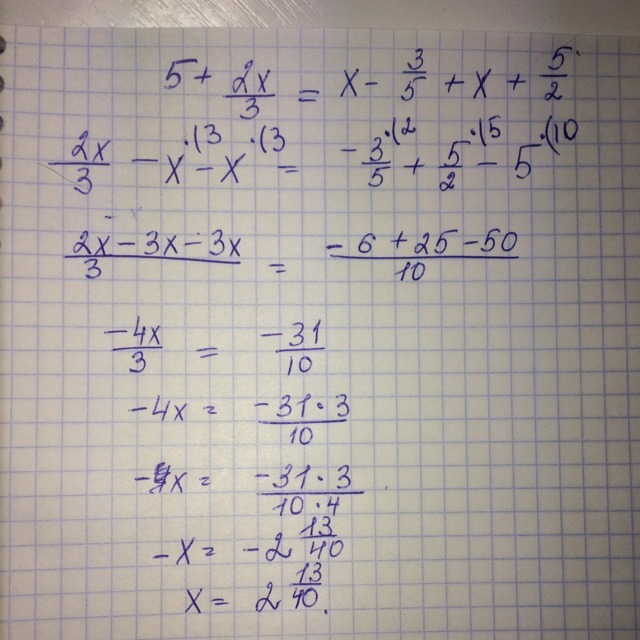 5 + 2x/3 = x - 3/5 + x + 5/2
2x/3 - x·(3 - x·(3 = -3/5·(2 + 5/2·(5 - 5·(10
2x - 3x - 3x/3 = -6 + 25 - 50/10
-4x/3 = -31/10
-4x = -31·3/10
-x = -31·3/10·4
-x = -2 13/40
x = 2 13/40.